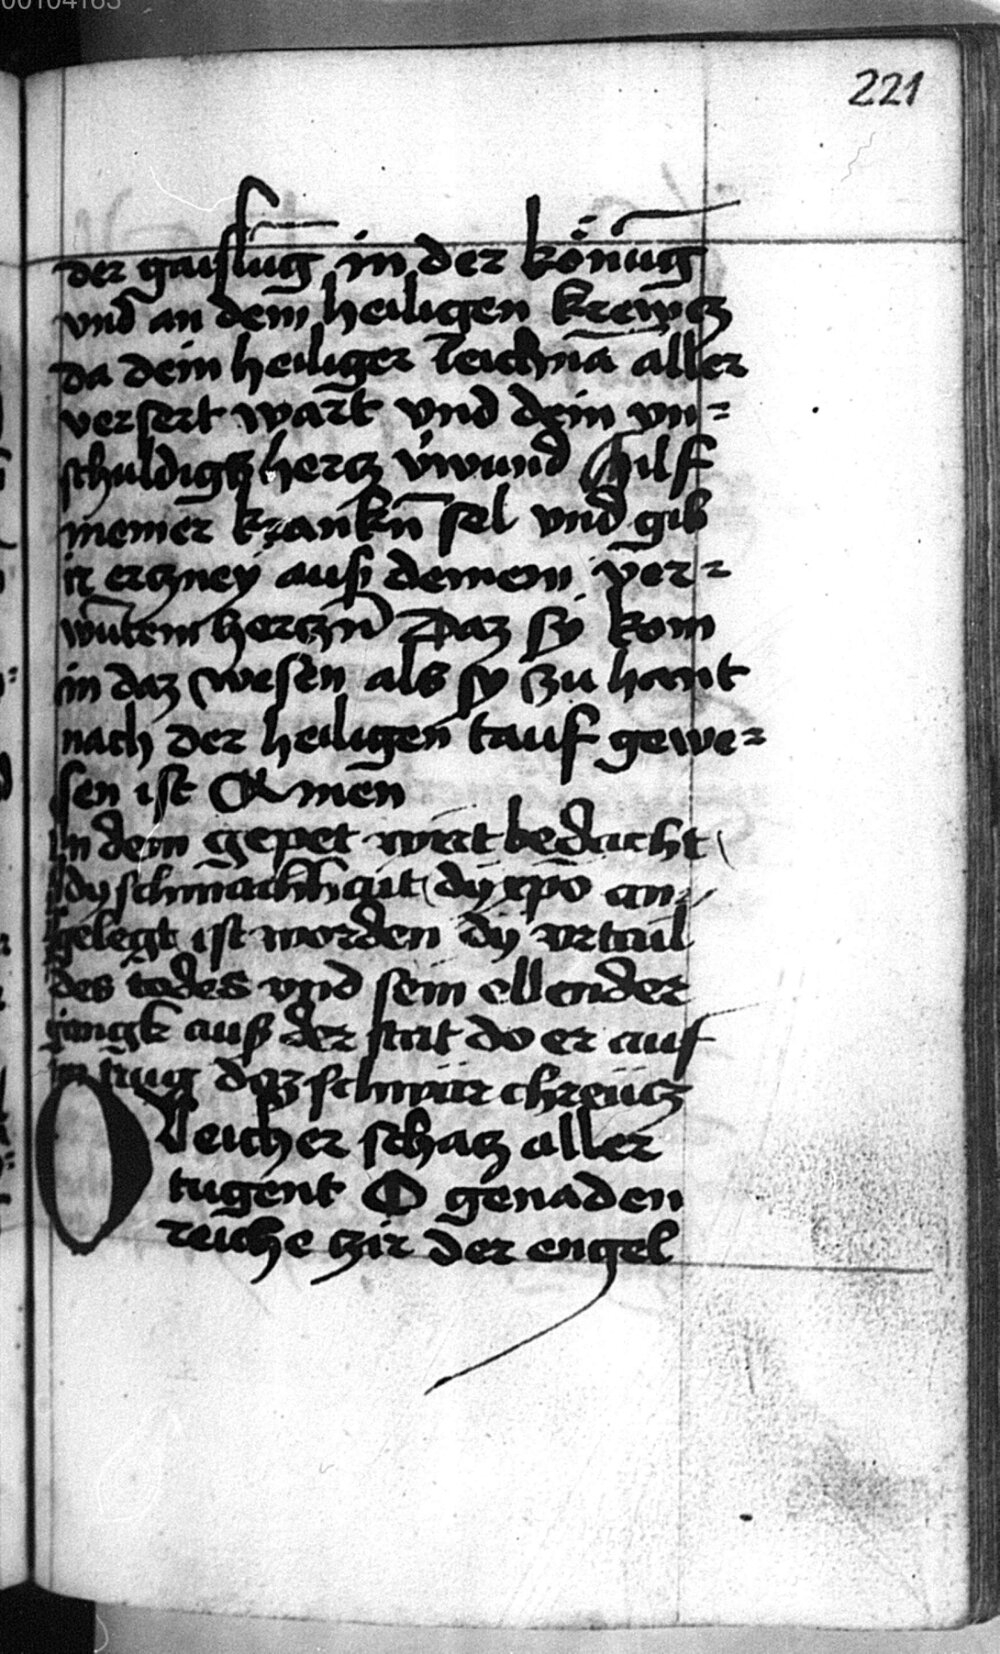 00104165
221
der gaislūg in der könūg
vnd an dem heiligen krewcz
da dein heiliger leichnā aller
versert wart vnd dein vn=
schuldigs hercz v'wund Hilf
meiner krankn̄ sel vnd gib
ir erczney auß deinem ver=
wūtem herczn Daz sy kom
in daz wesen als sy zu hant
nach der heiligen tauf gewe=
sen ist Amen
In dem gepet wirt bedacht
dy schmachhait dy xp̄o an
gelegt ist worden dy vrtail
des todes vnd sein ellender
gangk auß der stat do er auf
im trug daz schwär chreücz
O Reicher schacz aller
tugent O genaden
reiche zir der engel